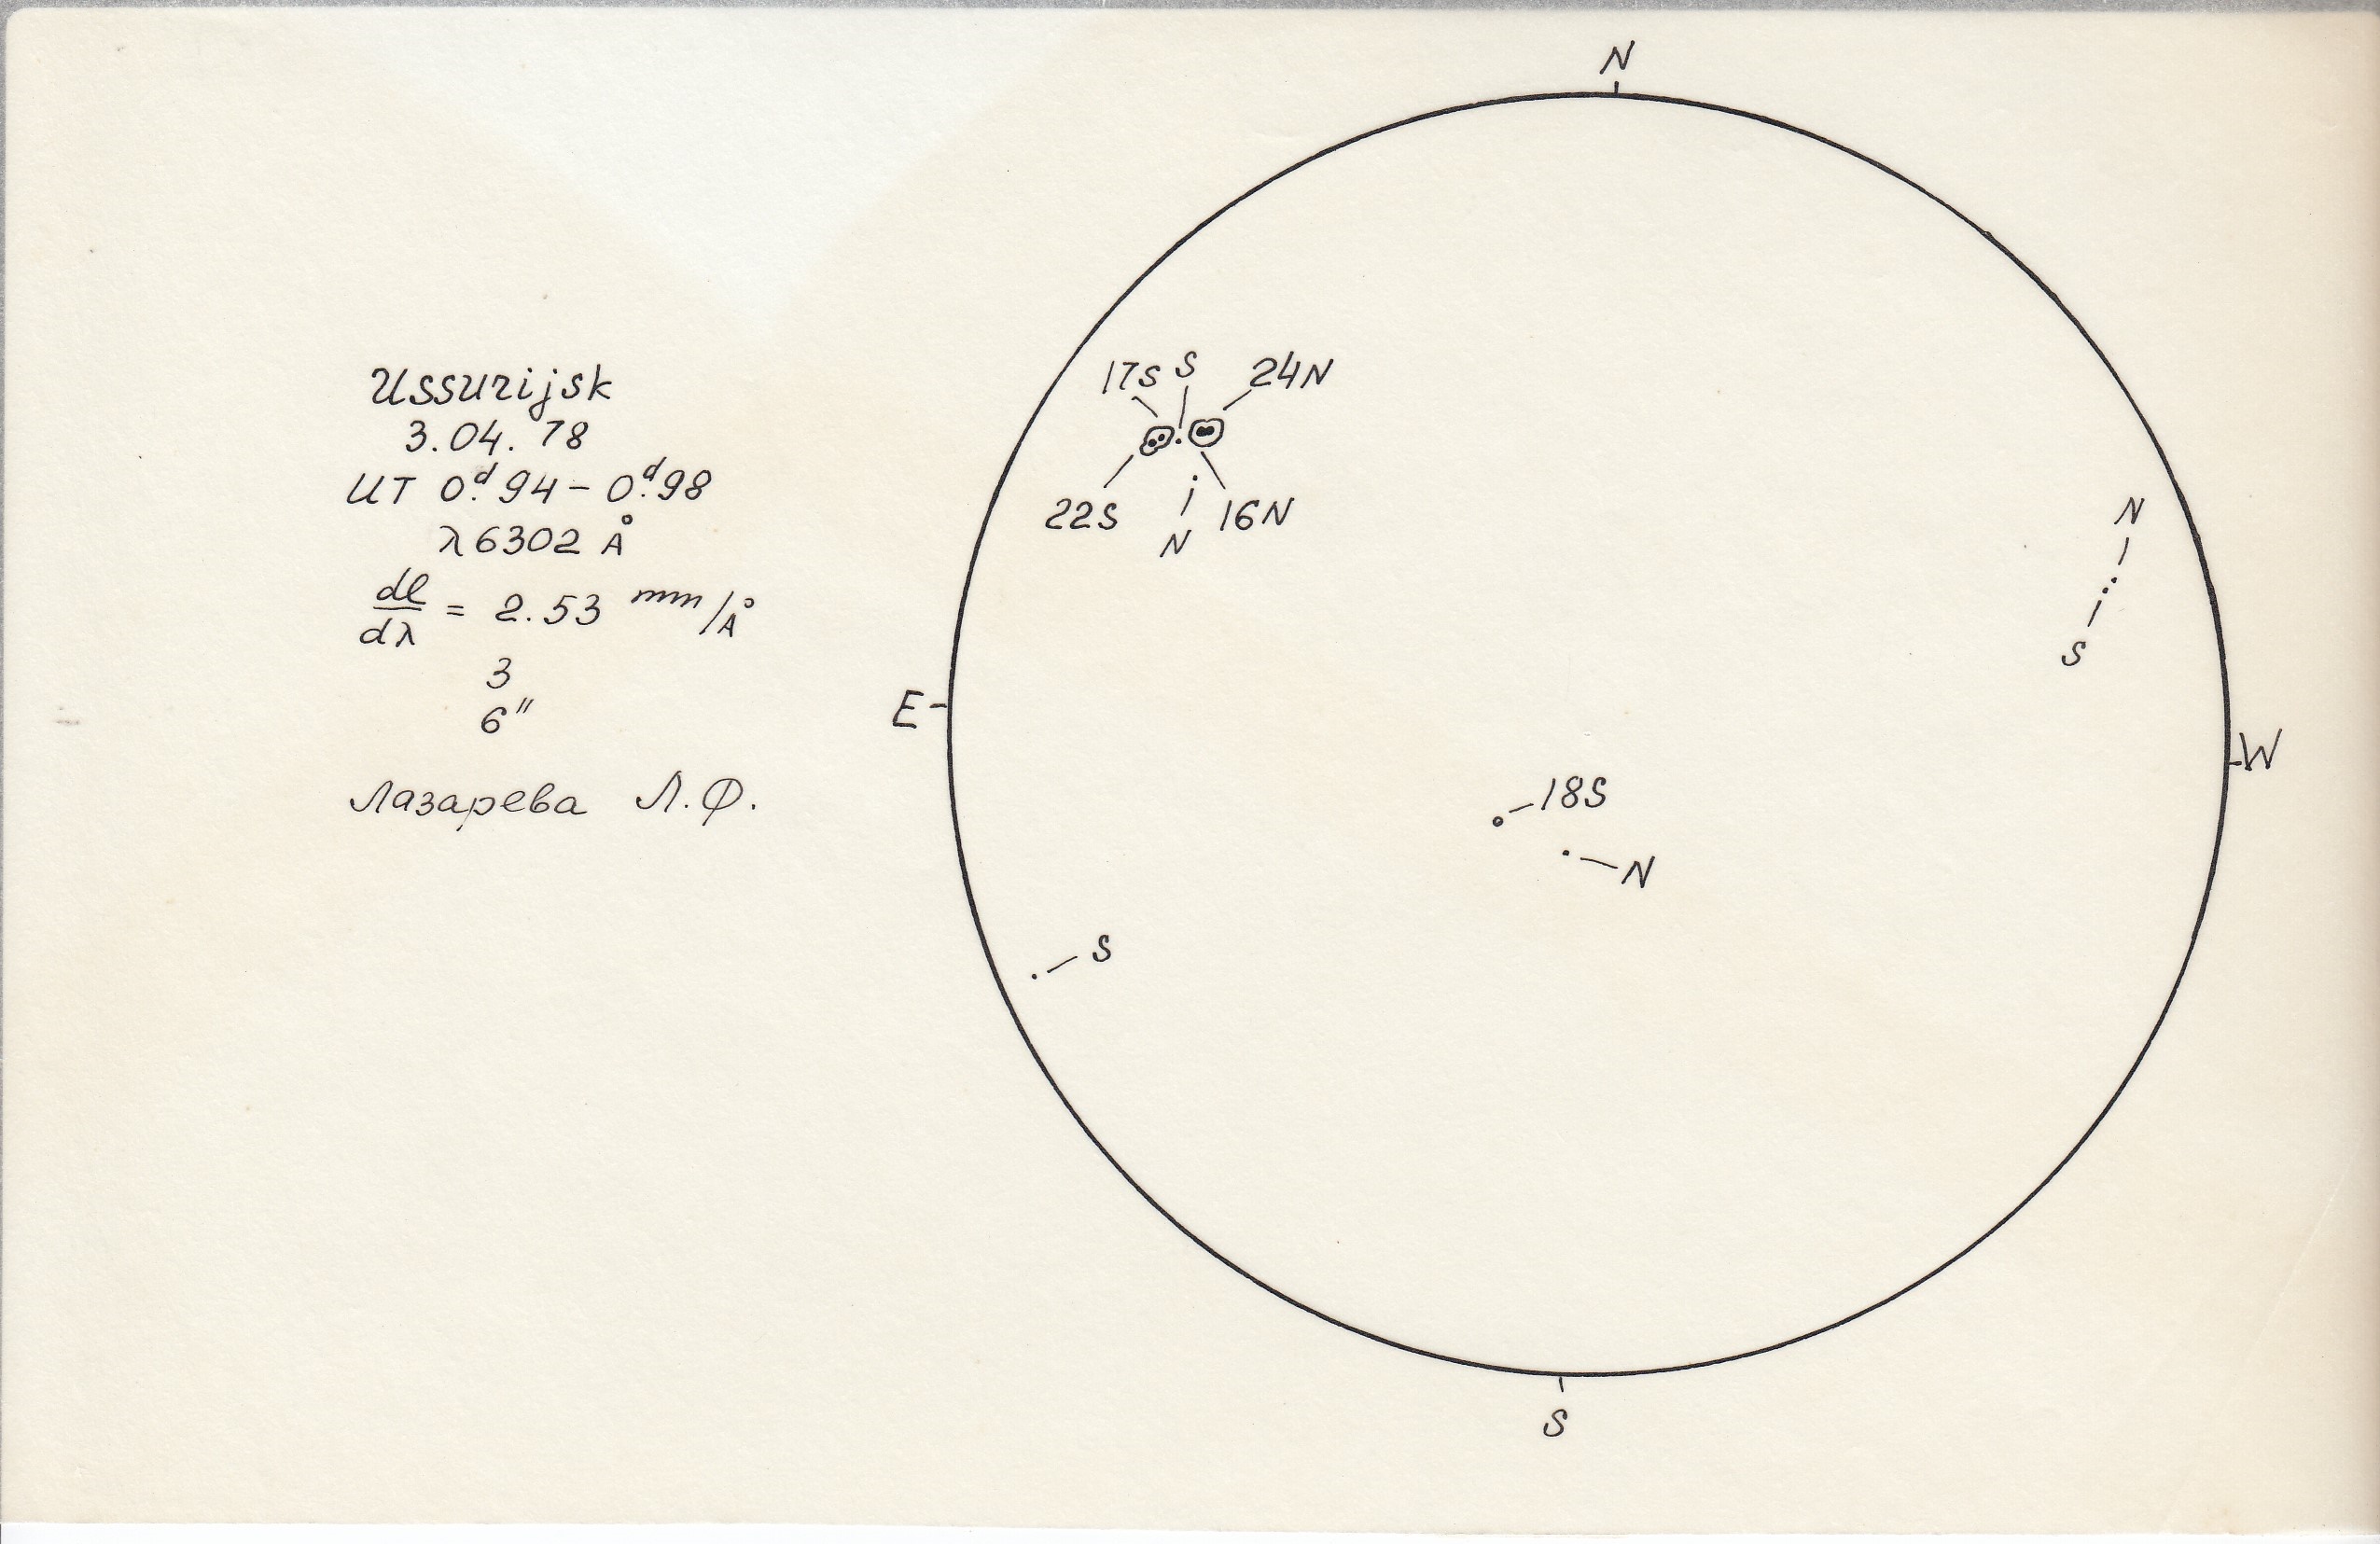 Ussurijsk
3.04.78
UT 0.ᵈ94 – 0.ᵈ98
λ6302 Å
dl/dλ = 2.53 mm/Å
3
6"
Лазарева Л.Ф.
N
17S S 24N
22S N 16N
N
S
E
W
18S
N
S
S